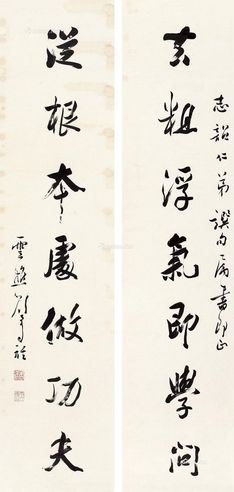 志韶仁弟撰句屬書即正
去粗浮氣即學問
從根本處做功夫
雲